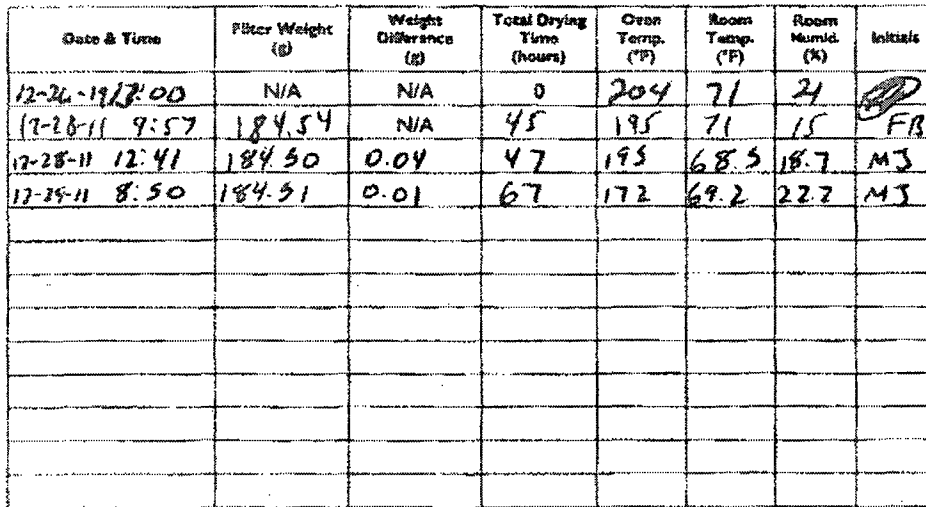 Date & Time Filter Weight (g) Weight Difference (g) Total Drying Time (hours) Oven Temp. (°F) Room Temp. (°F) Room Humid. (%) Initials
12-26-19 :00 N/A N/A 0 204 71 21
12-28-11 9:57 184.54 N/A 45 195 71 15 FB
12-28-11 12:41 184.50 0.04 47 195 68.5 18.7 MJ
12-29-11 8:50 184.51 0.01 67 172 69.2 22.7 MJ